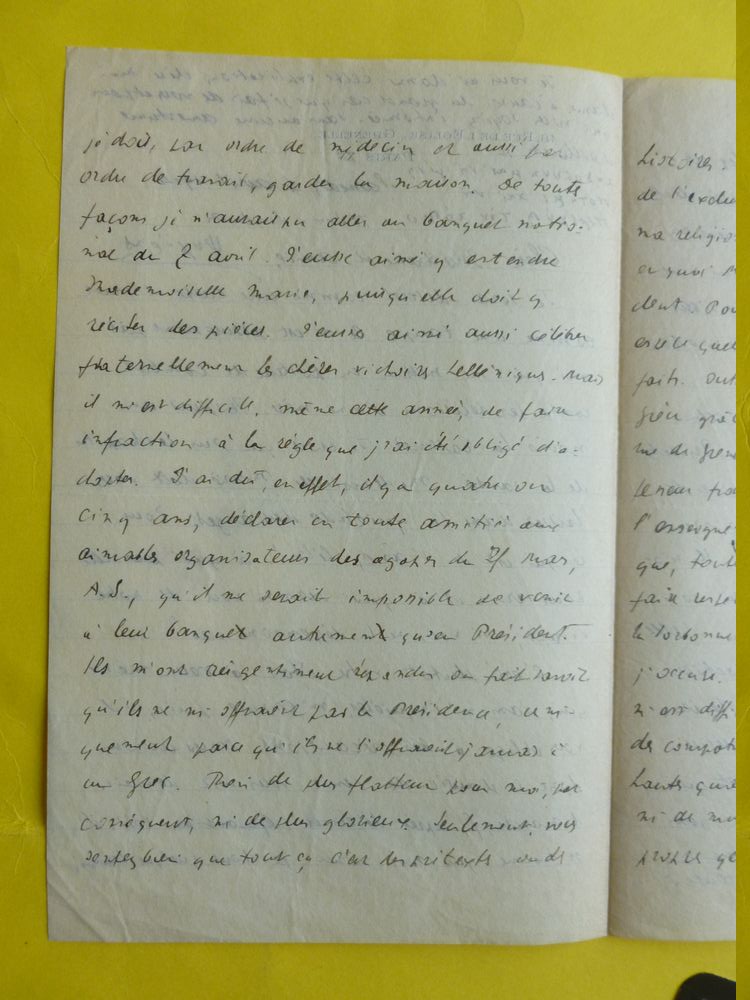 je dois, par ordre de médecin et aussi par
ordre de travail, garder la maison. De toute
façons je n'aurais pu aller au banquet natio-
nal du 7 avril. J'eusse aimé y entendre
Mademoiselle Marie, puisqu'elle doit y
réciter des pièces. J'eusse aimé aussi célébrer
fraternellement les chères victoires helléniques. Mais
il m'est difficile, même cette année, de faire
infraction à la règle que j'ai été obligé d'a-
dopter. J'ai dû, en effet, il y a quatre ou
cinq ans, déclarer en toute amitié aux
aimables organisateurs des agapes du 25 Mars,
A.S., qu'il me serait impossible de venir
à leur banquet autrement qu'en Président.
Ils m'ont gentiment répondu ou fait savoir
qu'ils ne m'offraient pas la Présidence, uni-
quement parce qu'ils ne l'offraient jamais à
un Grec. Rien de plus flatteur pour moi, par
conséquent, ni de plus glorieux. Seulement, vous
sentez bien que tout ça, c'est des prétextes
histoires
de l'exclu
ma religio
en quoi
dent Pou
faits
l'enseigne
que, tout
la Sorbonne
j'accuse.
m'est diffi
des compat
hautes
ni de mo
propre